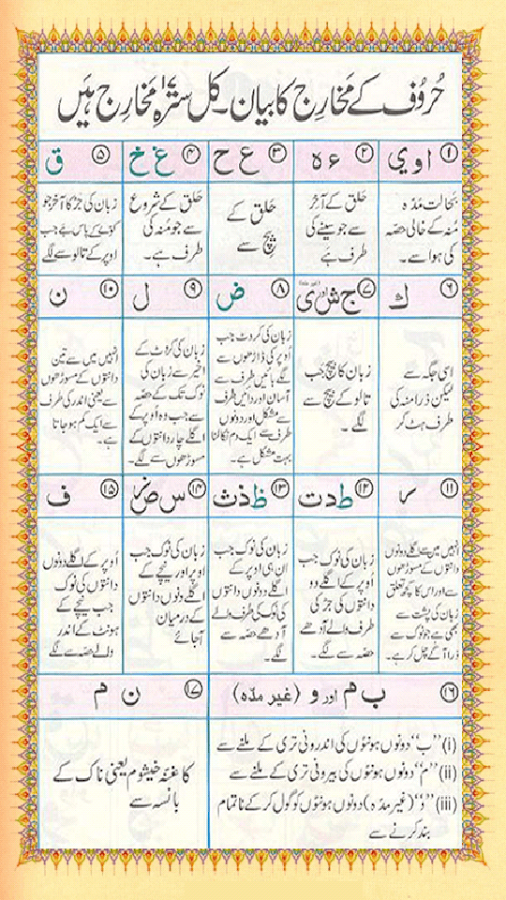 حُروُف کے مَخارِج کا بیان۔ کل سترہ ۱۷ مَخارِج ہَیں
۱ ا و ی
۲ ء ہ
۳ ع ح
۴ غ خ
۵ ق
بحالت مدّہ
مُنہ کے خالی حصّہ
کی ہوا سے۔
حَلق کے آخِر
سے جو سینے کی
طرف ہے
حَلق کے
بیچ سے
حَلق کے شروع
سے جو مُنہ کی
طرف ہے۔
زبان کی جڑ کا آخر جو
کوّے کے پاس ہے جب
اوپر کے تالو سے لگے
۶ ك
۷ ج ش ی
۸ ض
۹ ل
۱۰ ن
اسی جگہ سے
لیکن ذرا منہ کی
طرف ہٹ کر
زبان کا بیچ جب
تالو کے بیچ سے
لگے۔
زبان کی کروٹ جب
اُوپر کی ڈاڑھوں سے
لگے بائیں طرف سے
آسان اور دایں طرف
سے مشکل اور دونوں
طرف سے ایک دم نکالنا
بہت مشکل ہے۔
زبان کی کروٹ کے
اخیر سے زبان کی
نوک تک کے حصّہ
سے جب وہ اُوپر کے
اگلے چار دانتوں کے
مسوڑھوں سے لگے۔
انہیں میں سے تین
دانتوں کے مسوڑھوں
سے یعنی اندر کی طرف
سے ایک کم ہو جاتا
ہے۔
۱۱ ر
۱۲ ط د ت
۱۳ ظ ذ ث
۱۴ س ص ز
۱۵ ف
انہیں میں سے اگلے دونوں
دانتوں کے مسوڑھوں
سے اور اس کا کچھ تعلق
زبان کی پشت سے
بھی ہے جو نوک سے
ذرا آگے چل کر ہے۔
زبان کی نوک جب
اُوپر کے اگلے دو
دانتوں کی جڑ کی
طرف والے آدھے
حصّہ سے لگے۔
زبان کی نوک جب
ان ہی اوپر کے
اگلے دونوں دانتوں
کی نوک کی طرف والے
آدھے حصّہ سے
لگے۔
زبان کی نوک جب
اوپر اور نیچے کے
اگلے دونوں دانتوں
کے درمیان
آجائے
اُوپر کے اگلے دونوں
دانتوں کی نوک
جب نیچے کے
ہونٹ کے اندر
والے حصّہ سے لگے
۱۶ ب م اور و (غیر مدّہ)
۱۷ ن م
(i) ”ب“ دونوں ہونٹوں کی اندرونی تری کے ملنے سے
(ii) ”م“ دونوں ہونٹوں کی بیرونی تری کے ملنے سے
(iii) ”و“ (غیر مدّہ) دونوں ہونٹوں کو گول کر کے ناتمام
بند کرنے سے
کا غنّہ خیشوم یعنی ناک کے
بانسہ سے